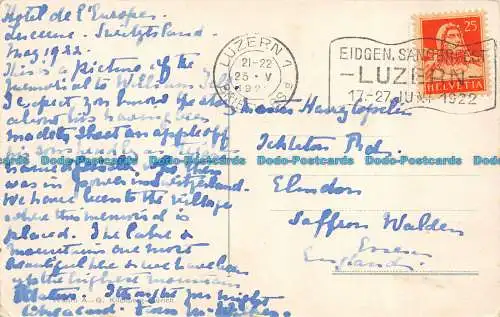 Hotel de l'Europe,
Lucerne. Switzerland
May 1922.
This is a picture of the
memorial to William Tell
I expect you know the story
about his having been
made to shoot an apple off
his son's head
was in Switzerland.
We have been to the village
where this memorial is
placed. The lake &
mountains are most
beautiful here & we have been
up the highest mountain
I thought you might
LUZERN 1
21-22
25 V
EIDGEN. SÄNGERFEST
-LUZERN-
17-27. JUNI 1922
25
HELVETIA
Master Hans
Ickleton Rd.
Elmdon
Saffron Walden
Essex
England.
Dodo-Postcards Dodo-Postcards Dodo-Postcards Dodo-Postcards